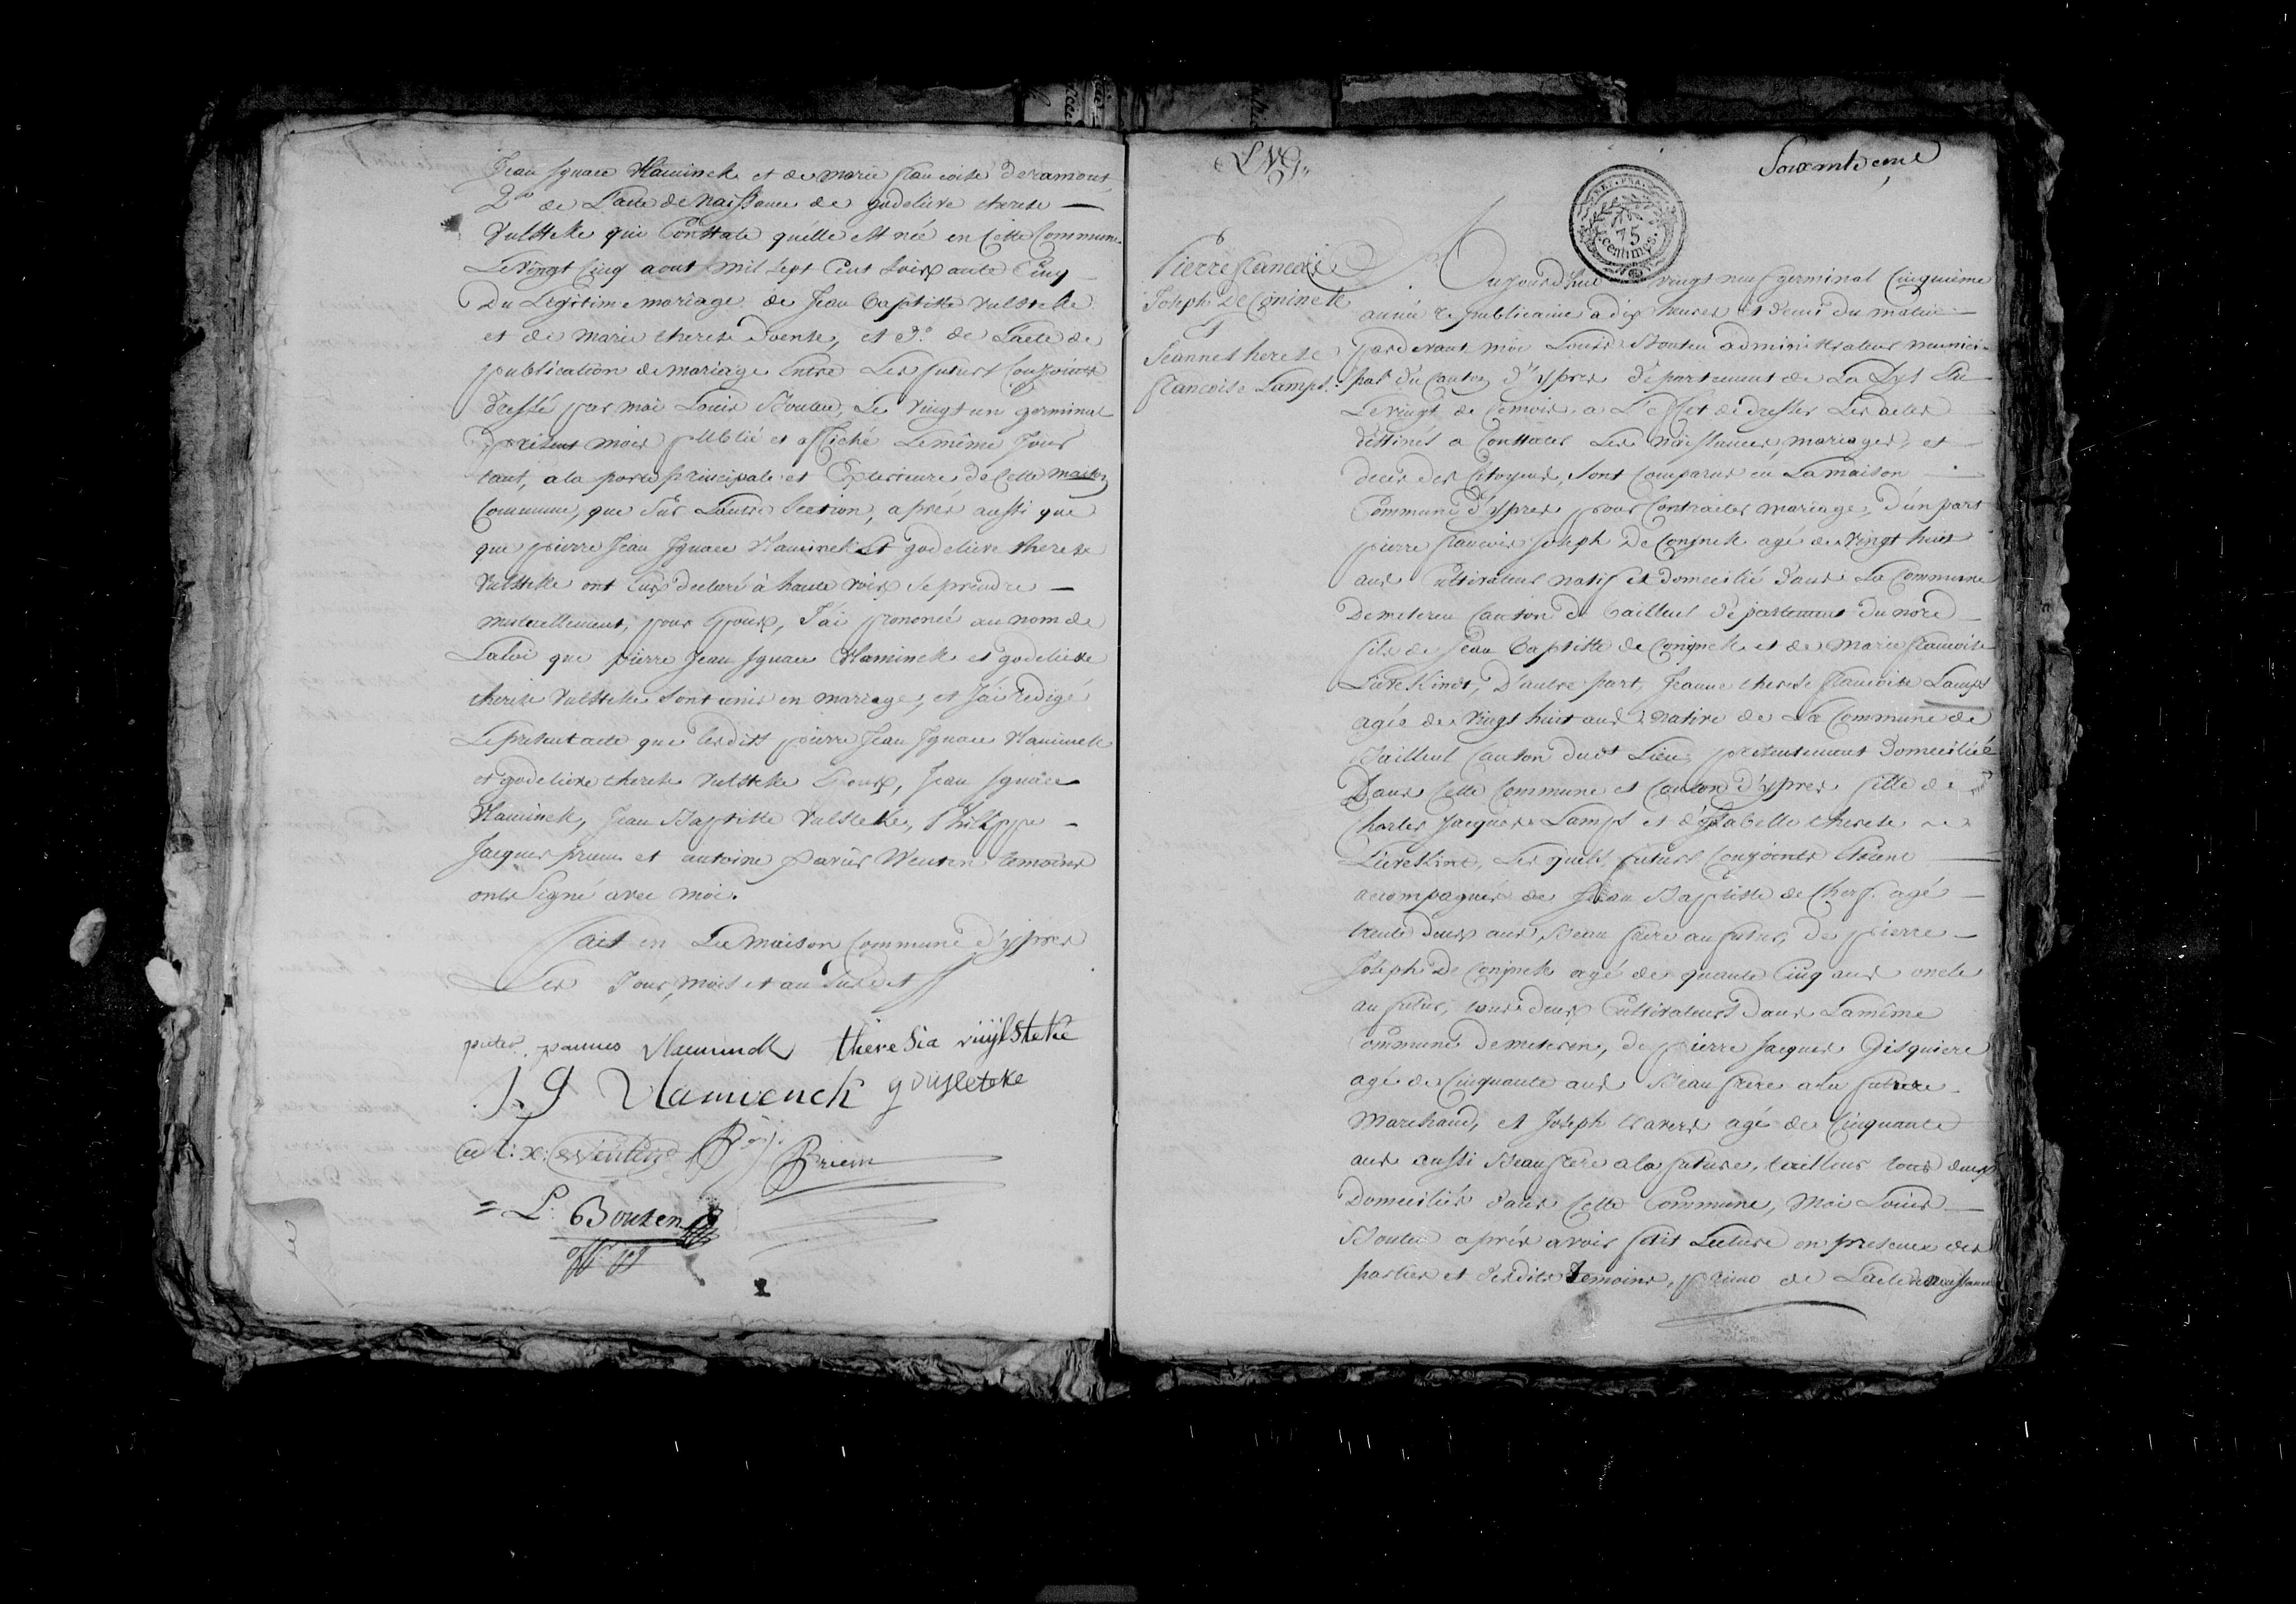 Jean Ignace Vlaminck et de marie francoise deramout
2do de L'acte de Naissance de godelieve therese —
Vulsteke qui Constate qu'elle est née en Cette Commune
Le vingt Cinq aout mil sept Cent soixante Cinq
Du Legitime mariage de Jean baptiste vulsteke
et de marie therese, et 3o. de L'acte de
publication de mariage Entre Les futurs Conjoints
dressé par moi Louis Bouten, Le vingt un germinal
présent mois publié et affiché Le même Jour
tant, a la porte principale et Exterieure de Cette maison
Commune, que Sur L'autre Section, après aussi que
que pierre Jean Ignace Vlaminck Et godelieve therese
Vulsteke ont Eux declaré à haute voix se prendre —
mutuellement, pour Epoux, J'ai prononcé au nom de
La loi que pierre Jean Ignace Vlaminck et godelieve
therese Vulsteke sont unis en mariage, et J'ai redigé
Le present acte que Lesdits pierre Jean Ignace Vlaminck
et godelieve therese Vulsteke Epoux, Jean Ignace
Vlaminck, Jean Baptiste Vulsteke, Philippe —
Jacques priem et antoine Xavier Wenten temoins
ont Signé avec moi.
fait en La maison Commune d'ypres
Les Jour, mois et an Susdit
pieter joannes Vlaminck theresia vuÿlsteke
J. J Vlamienck g vuylsteke
Priem
= L: Bouten
LVI,,
Soixantieme
REP. FRA.
75
centimes.
Pierre francois
Joseph De Coninck
Et
Jeanne therese
francoise Lamps.
Aujourd'hui vingt neuf germinal Cinquieme
année republicaine a dix heures et demi du matin —
pardevant moi Louis Bouten administrateur munici-
pal du Canton d'ypres departement de La Lys Elu
Le vingt de Cemois, a L'effet de dresser Les actes
destinés a Constater Les Naissances, mariages, et
deces des Citoyens, sont Comparus en La maison
Commune d'ypres pour Contracter mariage, d'un part
pierre francois Joseph De Coninck agé de Vingt huit
ans Cultivateur natif et domicilié dans La Commune
De meteren Canton de bailleul département du nord
fils de Jean baptiste de Coninck et de marie francoise
Lievekindt, D'autre part, Jeanne therese francoise Lamps
agée de Vingt huit ans native de La Commune de
Bailleul Canton dudt Lieu, présentement Domiciliée
Dans Cette Commune et Canton d'ypres fille de
Charles Jacques Lamps et d'isabelle therese
Lievekint, Lesquels futurs Conjoints Etaient
accompagnés de Jean Baptiste de Cherf agé —
trente deux ans, Beau frere au futur, de pierre —
Joseph De Coninck agé de quarante Cinq ans oncle
au futur, tous deux Cultivateurs dans La même
Commune De meteren, de pierre Jacques Gisquiere
agé de Cinquante ans Beau frere a la future
Marchand, et Joseph agé de Cinquante
ans aussi Beau frere a la future, tailleur tous deux
Domiciliés dans Cette Commune, Moi Louis —
Bouten après avoir fait Lecture en presence des
parties et desdits temoins, primo de L'acte de Naissance